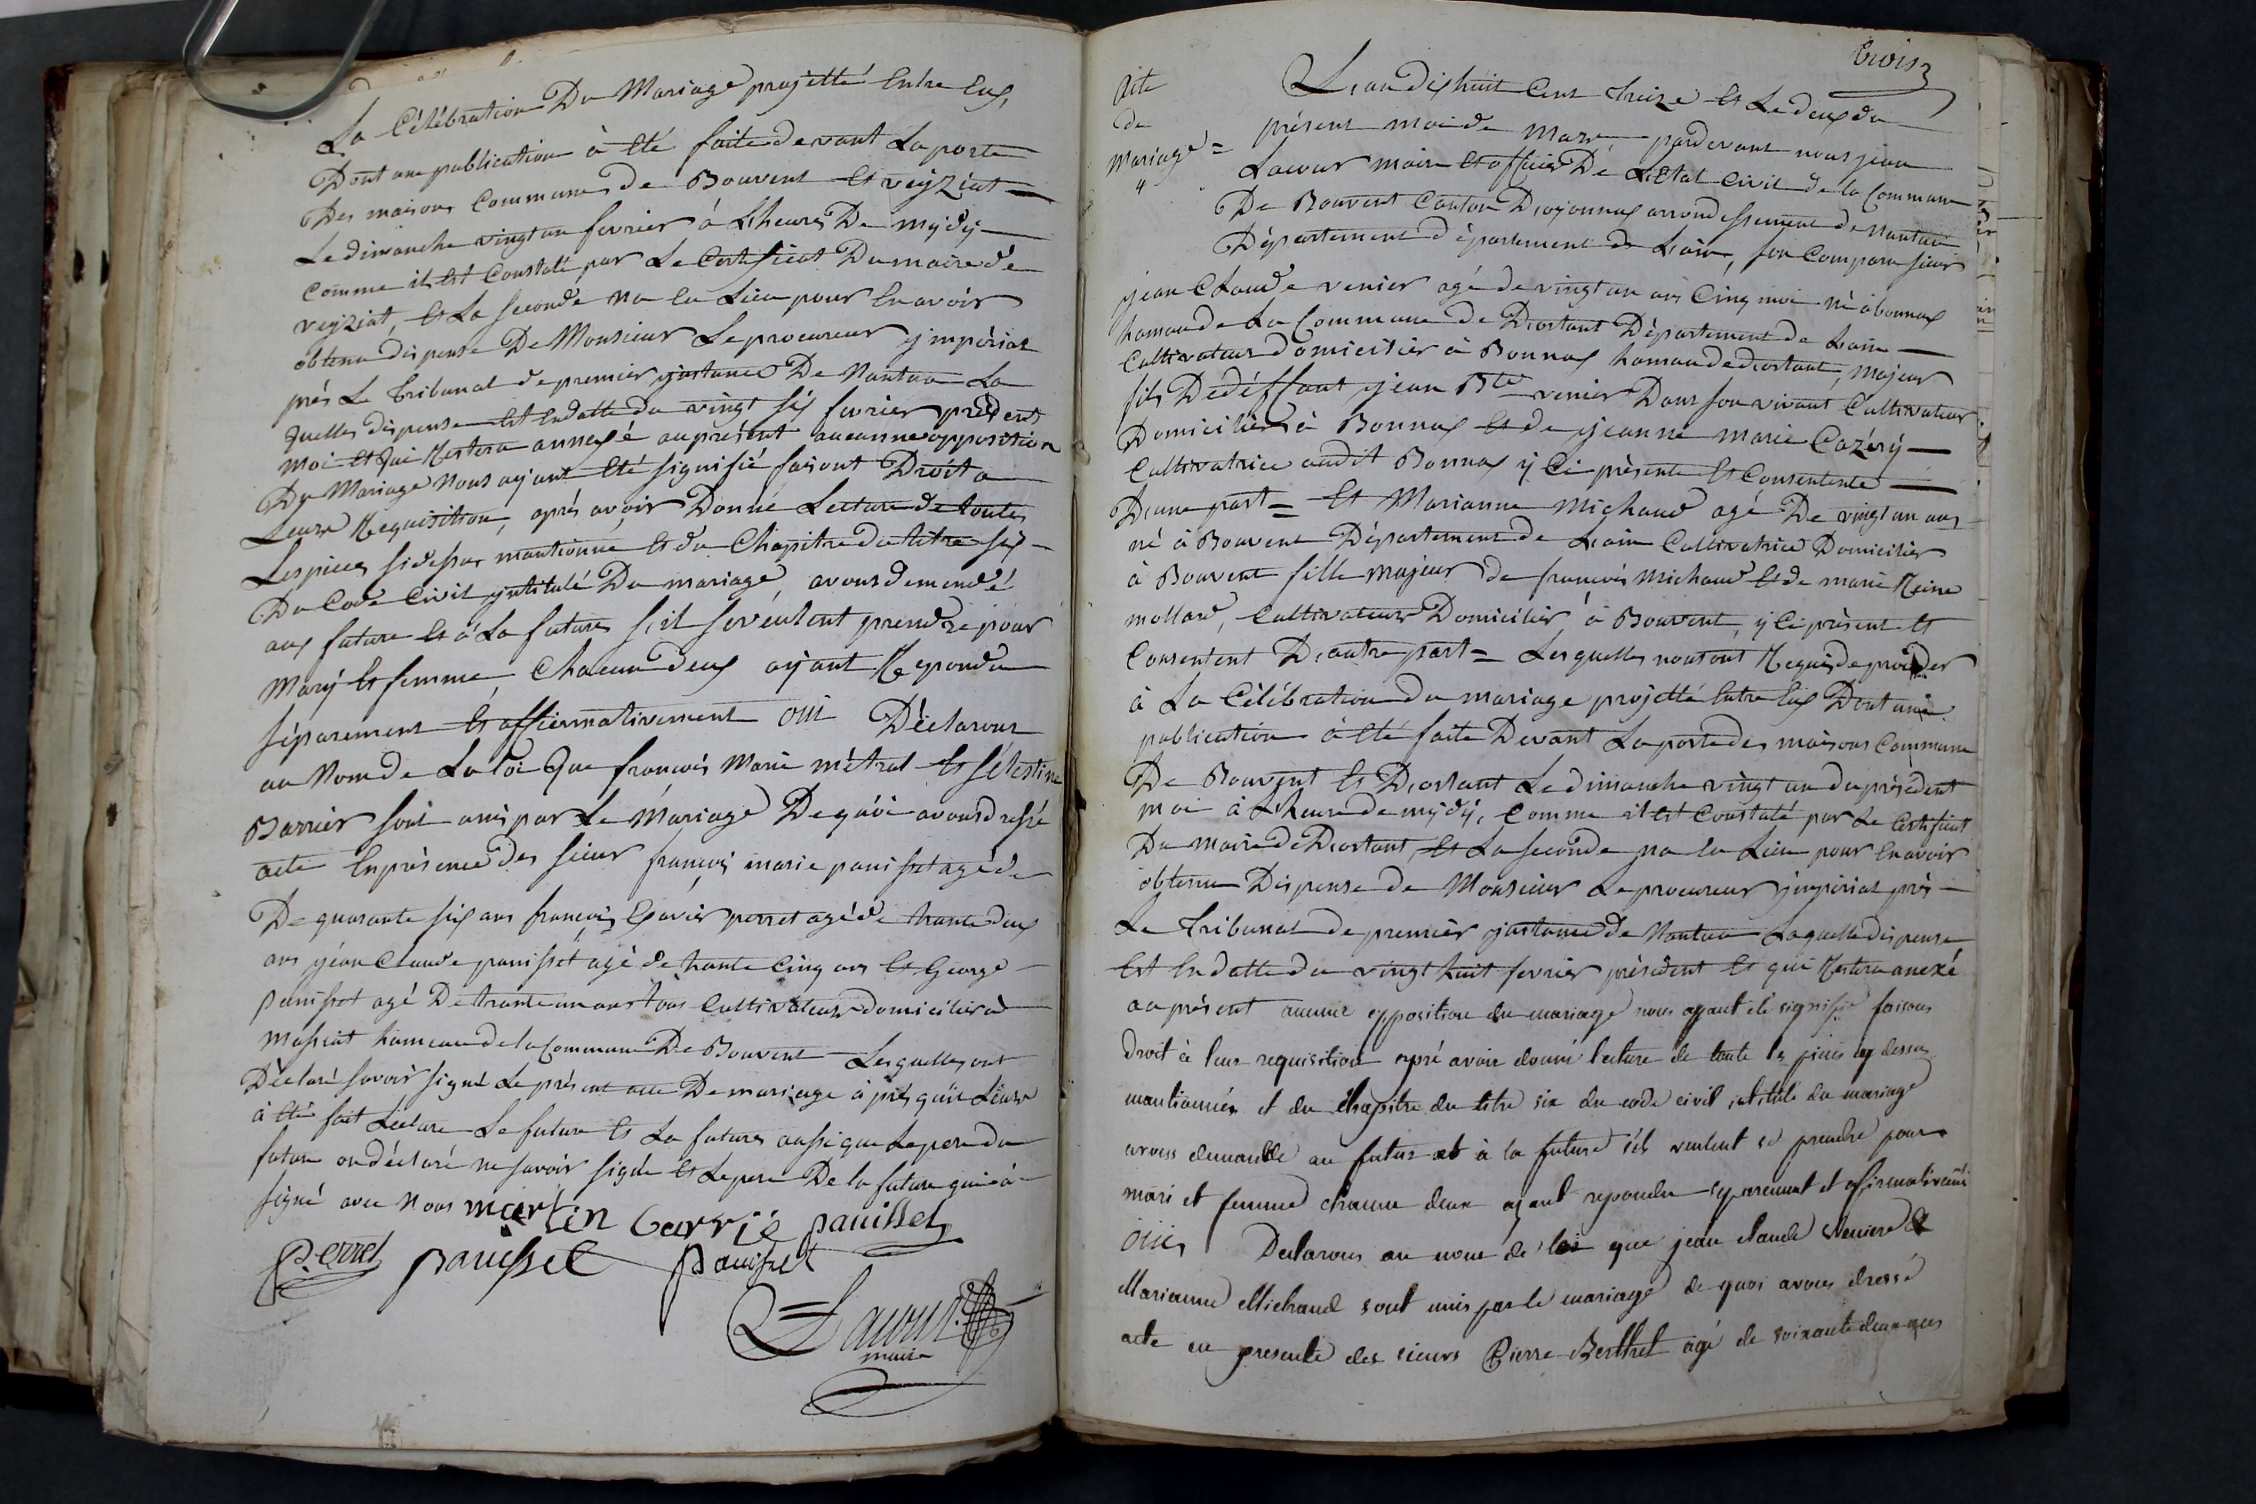 La Célébration Du Mariage projetté Entre Eux,
Dont une publication à Eté faite devant La porte
Des maisons Communes de Bouvent Et veyziat
Le dimanche vingt un fevrier à L'heure De mydy
Comme il Est Constaté par Le Certificat Du maire de
veyziat, Et La seconde na Eu Lieu pour En avoir
obtenu dispense De Monsieur Le procureur ymperial
près Le Tribunal de premier ynstance De Nantua La
quelle dispense Est En datte du vingt six fevrier présédent
moi Et qui Restera annexé au présent aucunne opposition
Du Mariage Nous ayant Eté signifié faisont Droit a
Leurs Requisition, aprés avoir Donné Lecture de toutes
Les pieces si dessus mantionné Et du Chapitre du titre six
Du Code Civil yntitulé Du mariage avons demendé
aux future Et à La future s'il se veulent prendre pour
Mary Et femme Chacun deux ayant Repondu
séparement Et affiermativement oui Déclarons
au Nom de La loi Que francois Marie métral Et sélestine
Barrier sont unis par Le Mariage De quoi avons dressé
acte En présence des sieur francois marie panisset agé de
De quarante six ans francois Exavier perret agé de trante deux
ans jean Claude panisset agé de trante Cinq ans Et George
panisset agé De trante un ans tous Cultivateur domicilier à
Massiat hameau de la Commune De Bouvent Lesquelles ont
Déclaré savoir signé Le présent acte De mariage à près qu'il Leurs
à Eté fait Lecture Le future Et La future aussi que Le pere du
future on déclaré ne savoir signér Et Le pere De la future qui à
signé avec Nous martin barrié panisset
Perret panisset panisset
Lacour
maire
trois 3
Acte
de
mariage =
L'an dix huit Cent Treize Et Le deux du
présent moi de Mars pardevant nous jean
Lacour maire Et officier De L'Etat Civil de la Commune
De Bouvent Canton D'oyonnax arrondissement de Nantua
Département département de L'ain, son Comparu sieur
jean Claude venier agé de vingt un ans Cinq moi né à bonnax
hamau de La Commune de Dortant Département de L'ain
Cultivateur domicilier à Bonnax hamau de dortant, Majeur
fils De déffunt jean Bte venier Dans son vivant Cultivateur
Domicilier à Bonnax Et de jeanne marie Cazéry
Cultivatrice audit Bonnax y Ci présente Et Consentente
D'une part = Et Marianne Michaud agé De vingt un ans
né à Bouvent Département de L'ain Cultivatrice Domicilier
à Bouvent fille Majeur de francois Michaud Et de marie Reine
mollard, Cultivateur Domicilier à Bouvent, y Ci présent Et
Consentent D'autre part = Lesquelles nous ont Requis de procéder
à La Célébration du mariage projetté Entre Eux Dont une
publication à Eté faite Devant La porte des maisons Commune
De Bouvent Et Dortant Le dimanche vingt un du présédent
moi à L'heure de mydy, Comme il Est Constaté par Le Certificat
Du maire de Dortant, Et La seconde na Eu Lieu pour En avoir
obtenu Dispense de Monsieur Le procureur ymperial près
Le Tribunal de premier ynstance de Nantua Laquelle dispense
Est En datte du vingt huit fevrier présédent Et qui Restera anexé
au présent aucune opposition du mariage nous ayant été signifié faisons
droit à leur requisition apré avoir donné lecture de toute les pieces cy dessus
mantionnées et du chapitre du titre six du code civil intitulé du mariage
avons demandé au futur et à la future s'ils veulent se prendre pour
mari et femme chacun deux ayant repondu separement et affirmativement
Oui, Declarons au nom de loi que jean claude Veniere &
Marianne Michaud sont unis par le mariage de quoi avons dressé
acte en presence des sieurs Pierre Berthet agé de soixante deux ans